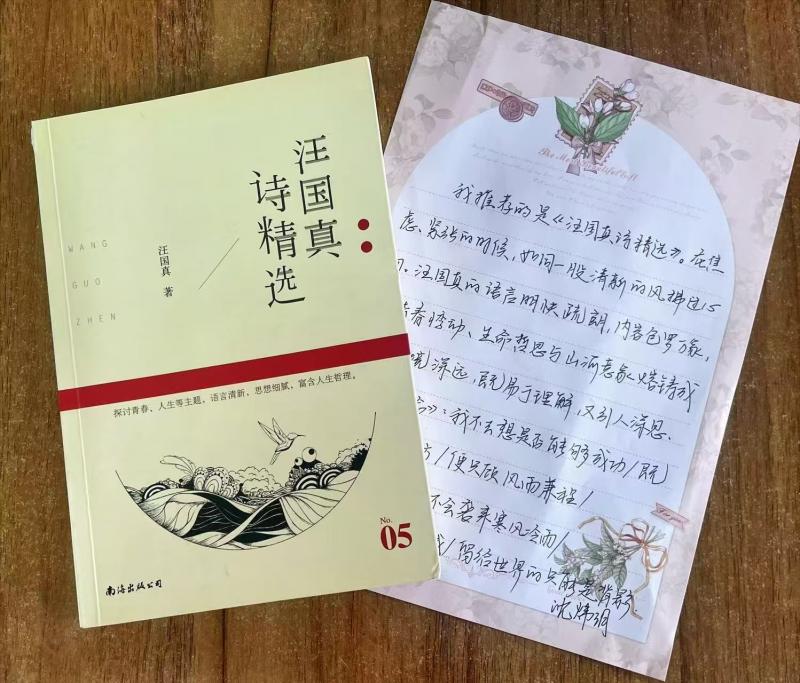 汪国真
诗精选
汪国真 著
WANG
GUO
ZHEN
探讨青春、人生等主题,语言清新,思想细腻,富含人生哲理。
No.
05
南海出版公司
我推荐的是《汪国真诗精选》。在焦
虑、紧张的时候,如同一股清新的风拂过心
汪国真的语言明快疏朗,内容包罗万象,
青春悸动、生命哲思与山河意象熔铸成
深远,既易于理解,又引人深思.
》:我不去想是否能够成功/既
方/便只顾风雨兼程/
不会袭来寒风冷雨/
/留给世界的只能是背影